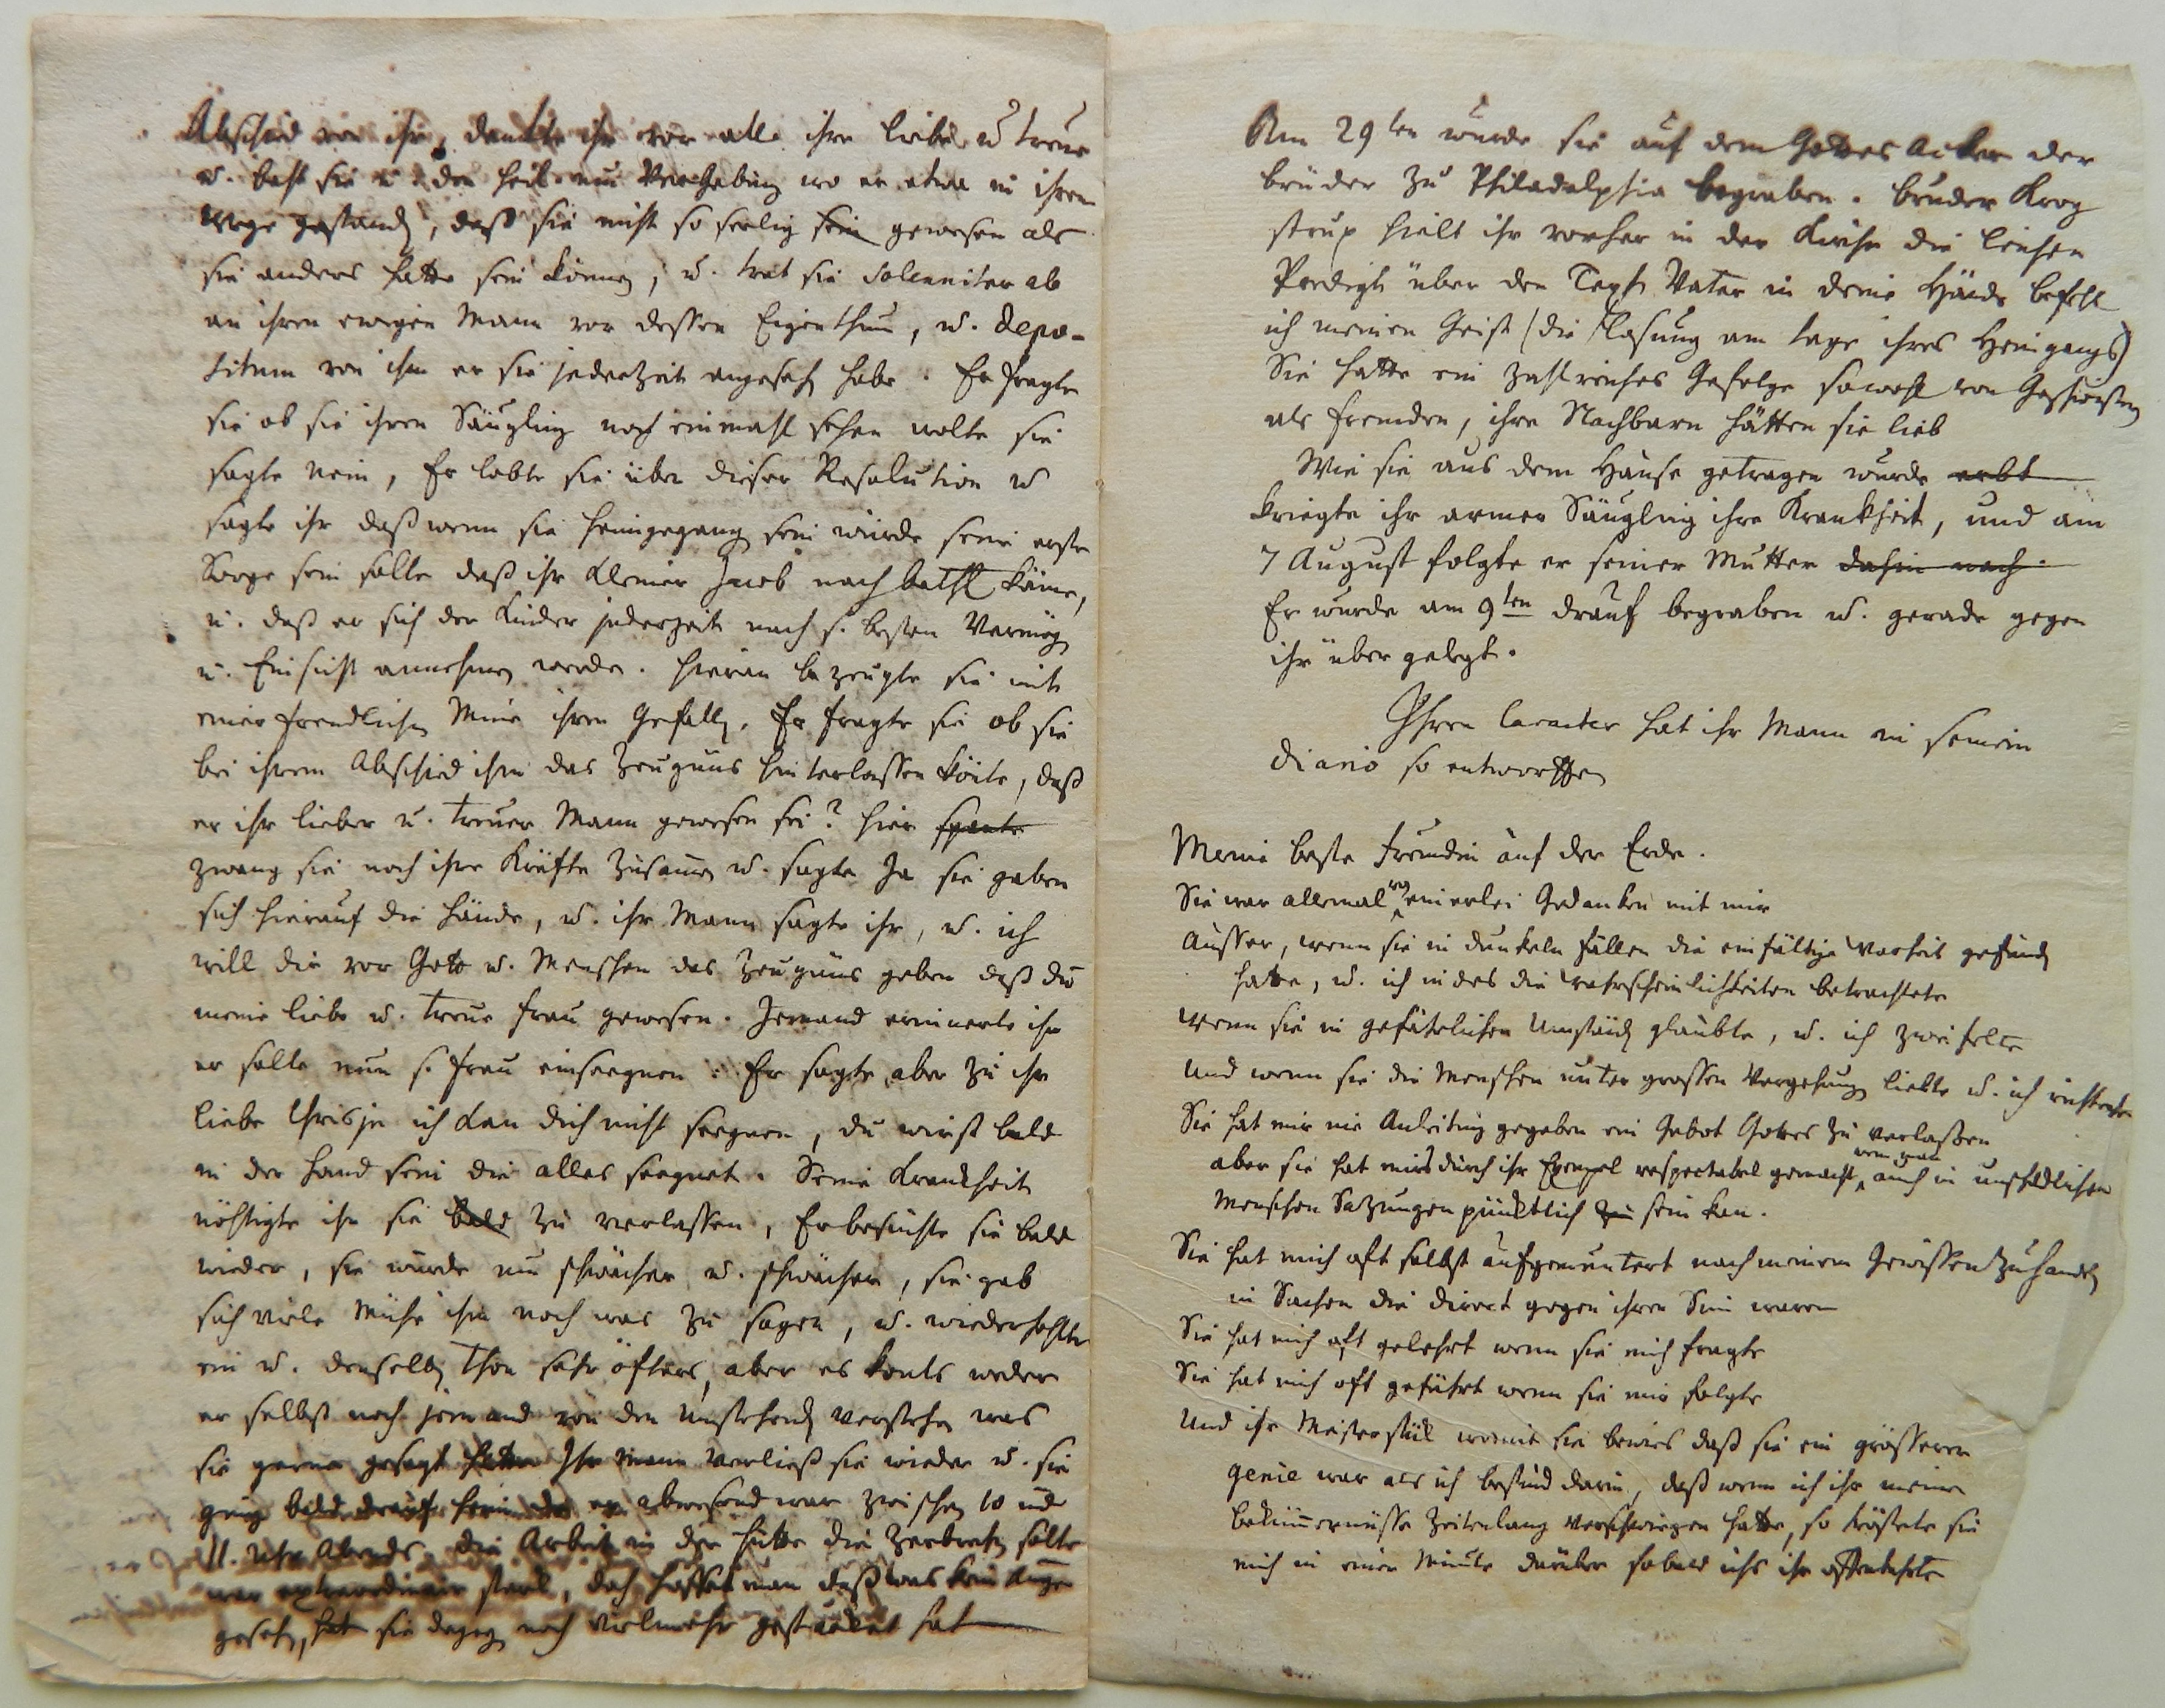 Abschied von ihr, dankte ihr vor alle ihre liebe u treue
u. bath sie u. den Heil. um Vergebung wo er etwa in ihrem
Wege gestanden, daß sie nicht so seelig sein gewesen als
sie anders hätte sein können, u. trat sie solenniter ab
an ihren ewigen Mann vor dessen Eigenthum, u. depo-
situm von ihm er sie jederzeit angesehen habe. Er fragte
sie ob sie ihren Säugling noch einmahl sehen wolte sie
sagte Nein, Er lobte sie über dieser Resolution u
sagte ihr daß wenn sie heimgegangen sein würde seine erste
Sorge sein solle daß ihr kleiner Jacob nach Bethl käme,
u. daß er sich der Kinder jederzeit nach s. besten Vermögen
u. Einsicht annehmen werde. hierin bezeugte sie mit
einer freundlichen Mine ihren Gefallen. Er fragte sie ob sie
bei ihrem Abschied ihm das Zeugnis hinterlassen könte, daß
er ihr lieber u. treuer Mann gewesen sei? hier
zwang sie noch ihre Kräfte zusamen u. sagte Ja sie gaben
sich hierauf die Hände, u. ihr Mann sagte ihr, u. ich
will dir vor Gott u. Menschen das Zeugnis geben daß du
meine liebe u. treue Frau gewesen. Jemand erinnerte ihn
er solle nun s. Frau einseegnen. Er sagte aber zu ihr
liebe Chrisje ich kan dich nicht seegnen, du wirst bald
in der Hand sein die alles seegnet. Seine Krankheit
nöthigte ihn sie bald zu verlassen, Er besuchte sie bald
wieder, sie wurde nur schwächer u. schwächer, sie gab
sich viele Mühe ihm noch was zu sagen, u. wiederhohlte
ein u. denselben Thon sehr öfters, aber es konte weder
er selbst noch jemand von den umstehenden verstehen was
sie gerne gesagt hätte Ihr Mann verließ sie wieder u. sie
ging bald drauf heim da er abwesend war zwischen 10 und
11. Uhr Abends, die Arbeit in der Hütte die zerbrechen solte
war extraordinair stark, doch hoffet man daß was kein Auge
gesehen, hat sie dagegen noch vielmehr gestärket hat
Am 29ten wurde sie auf dem Gottes Acker der
brüder zu Philadelphia begraben. bruder Krog
strup hielt ihr vorher in der Kirche die leichen
Predigt über den Text Vater in deine Hände befehl
ich meinen Geist (die Losung am tage ihres Heimgangs)
Sie hatte ein zahlreiches Gefolge sowohl von Geschwistern
als fremden, ihre Nachbarn hatten sie lieb
Wie sie aus dem Hause getragen wurde erbt
kriegte ihr armer Säugling ihre Krankheit, und am
7 August folgte er seiner Mutter dahin nach.
Er wurde am 9ten drauf begraben u. gerade gegen
ihr über gelegt.
Ihren Caracter hat ihr Mann in seinem
diario so entworffen
Meine beste Freundin auf der Erde.
Sie war allemal einerlei Gedanken mit mir
Ausser, wenn sie in dunkeln Fällen die einfältige Warheit gefunden
hatte, u. ich indes die wahrscheinlichkeiten betrachtete
Wenn sie in gefährlichen Umständen glaubte, u. ich zweifelte
Und wenn sie die Menschen unter grossen Vergehungen liebte u. ich richtete
Sie hat mir nie Anleitung gegeben ein Gebot Gottes zu verlaßen
aber sie hat mirs durch ihr Exempel respectabel gemacht, wenn man auch in unschädlichen
Menschen Satzungen pünktlich zu sein kan.
Sie hat mich oft selbst aufgemuntert nach meinem Gewissen zu handeln
in Sachen die direct gegen ihren Sinn waren
Sie hat mich oft gelehrt wenn sie mich fragte
Sie hat mich oft geführt wenn sie mir folgte
Und ihr Meisterstük womit sie bewies daß sie ein grösserer
Genie war als ich bestund darin, daß wenn ich ihr meine
Bekümmernüsse Zeitenlang verschwiegen hatte, so tröstete sie
mich in einer Minute darüber sobald ichs ihr offenbahrte